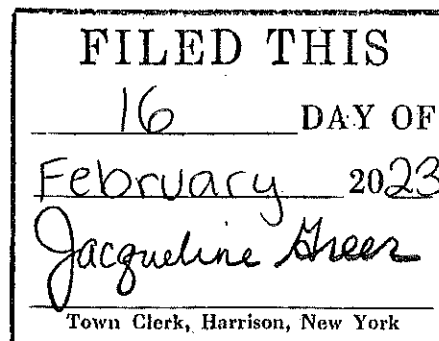 FILED THIS
16 DAY OF
February 2023
Jacqueline Greer
Town Clerk, Harrison, New York